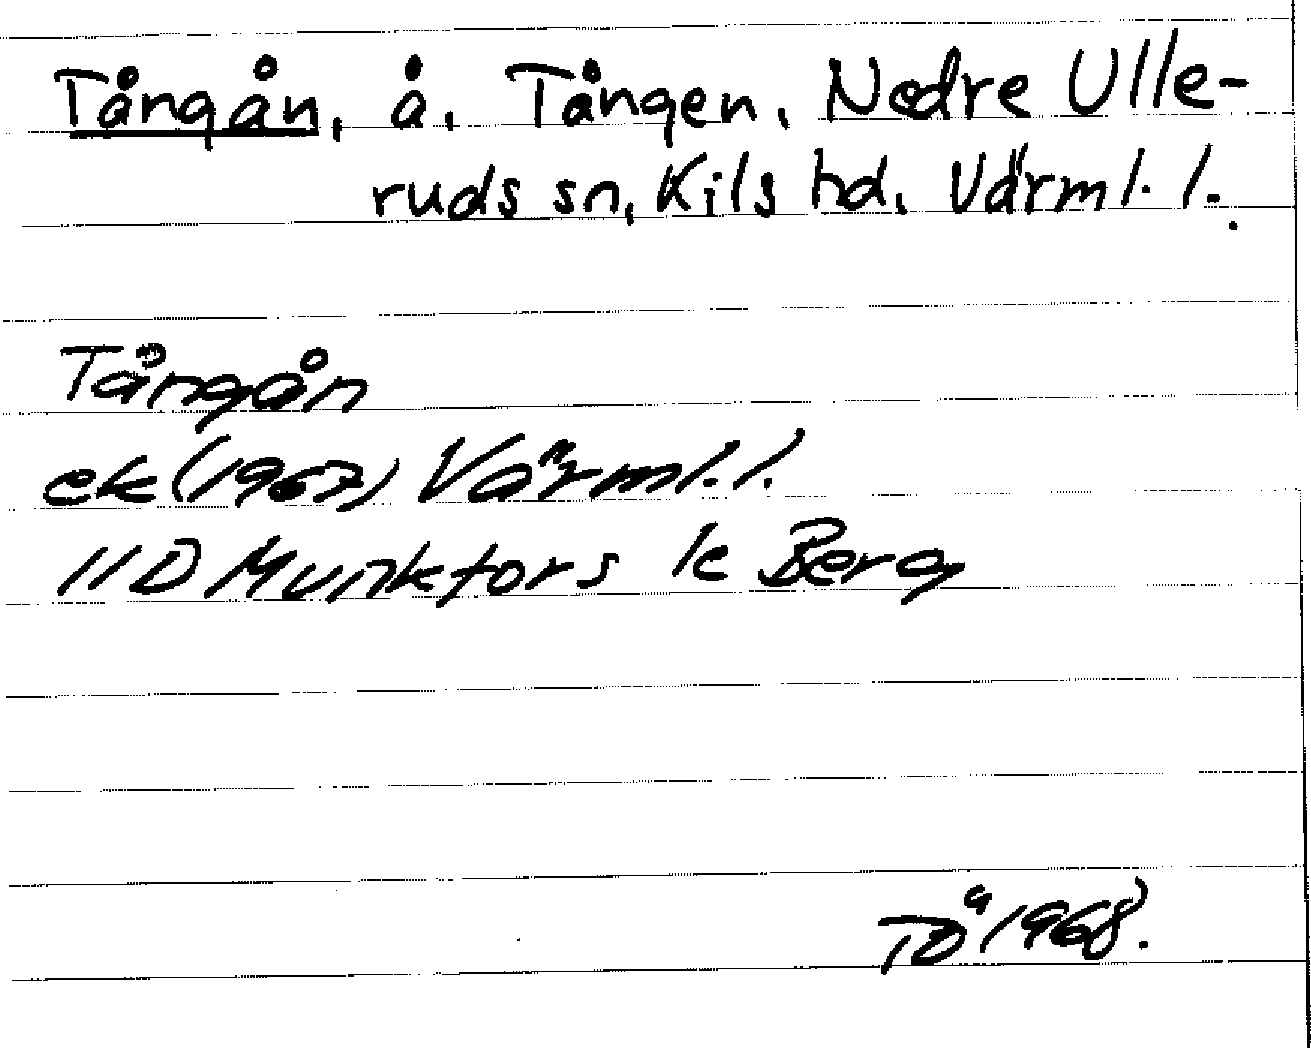 Tångån, å. Tången, Nedre Ulle-
ruds sn, Kils hd, Värml. l.
Tångån
ek (1967) Värml. l.
11D Munkfors k Berg
TÖ 1968.